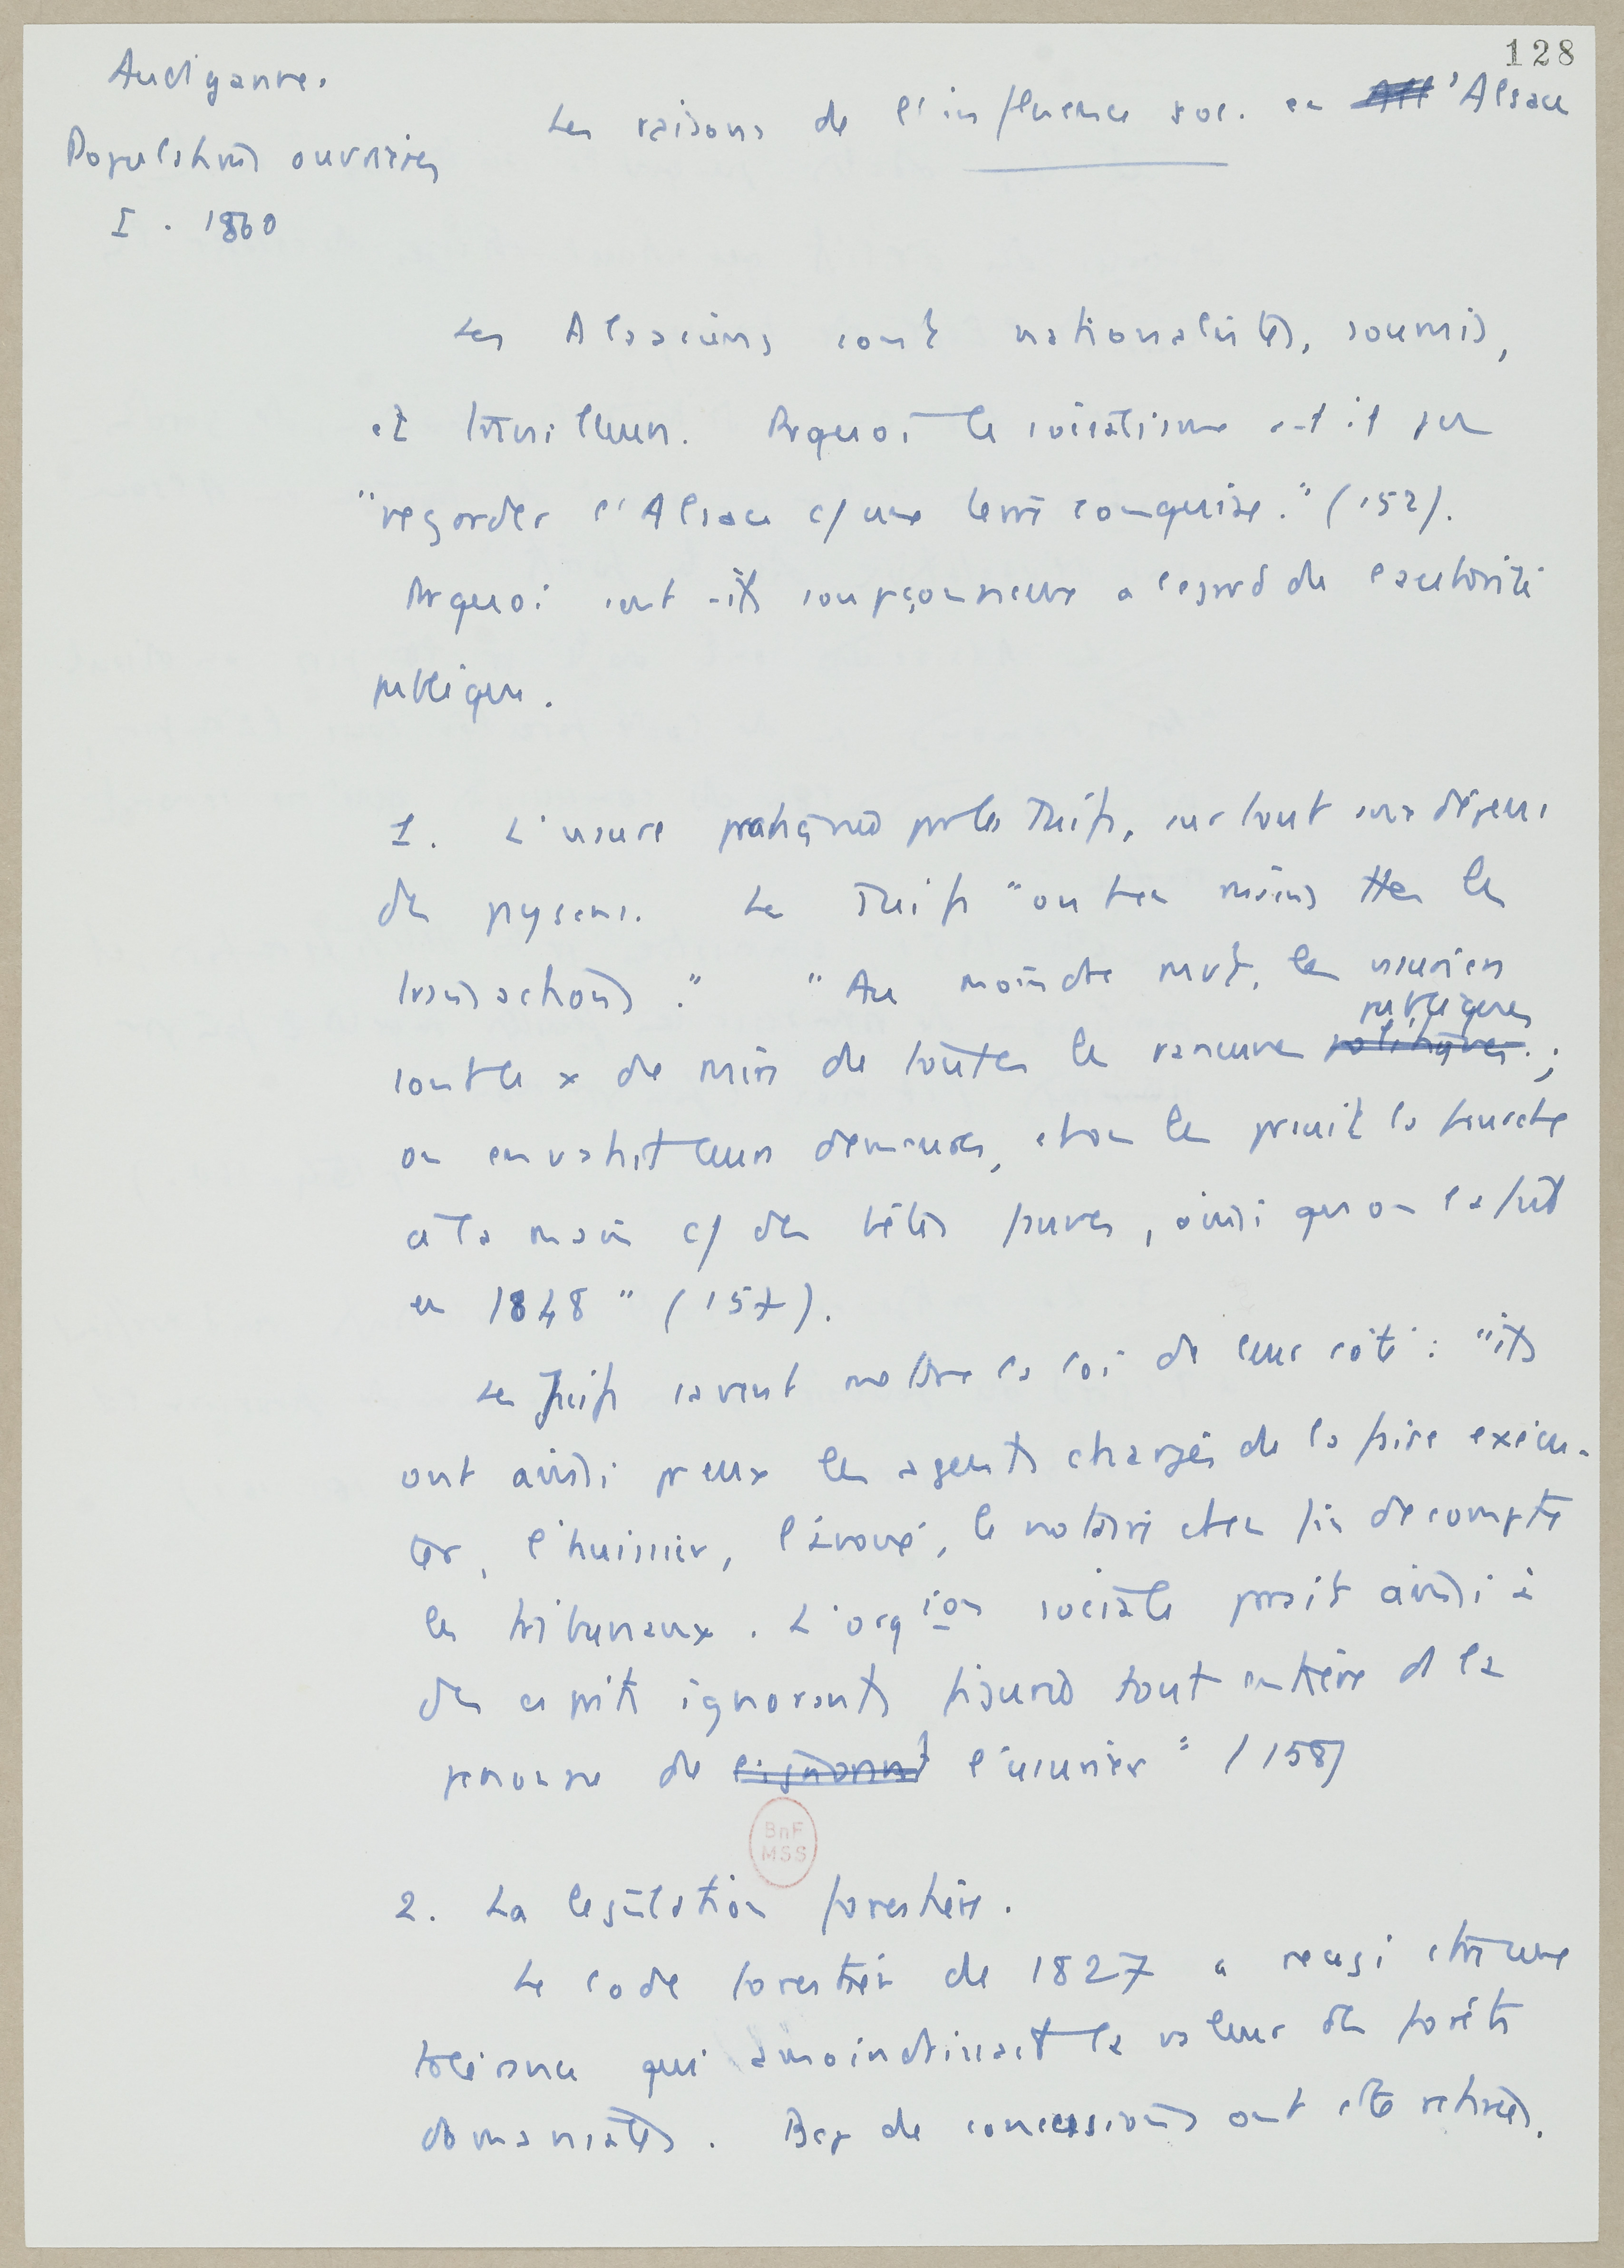 128
Audiganne.
Populations ouvrières
I. 1860
Les raisons de l'influence soc. en Alsace
Les Alsaciens sont nationalistes, soumis,
et travailleurs. Prquoi le socialisme a-t-il pu
"regarder l'Alsace c/ une terre conquise." (152).
Prquoi sont-ils soupçonneux a l'egard de l'autorité
publique.
1. L'usure pratiquée par les Juifs, surtout aux dépens
des paysans. Les Juifs "ont les mains ds les
transactions." "Au moindre mvt, les usuriers
publiques
sont le x de mire de toutes les rancunes politiques ;
on envahit leurs demeures, et on les pruit la fourche
a la main c/ des bêtes fauves, ainsi qu'on l'a fait
en 1848" (157).
Les Juifs savent mettre la loi de leur côté : "ils
ont ainsi pr eux les agents chargés de la faire exécu-
ter, l'huissier, l'avoué, le notaire et en fin de compte
les tribunaux. L'orgion sociale parait ainsi à
des esprits ignorants figurée tout entière ds la
personne de l'ignorant l'usurier" (158)
BnF
MSS
2. La legislation forestière.
Le code forestier de 1827 a reagi ctre une
tolérance qui amoindrissait la valeur des forêts
domaniales. Bcp de concessions ont été retirées.